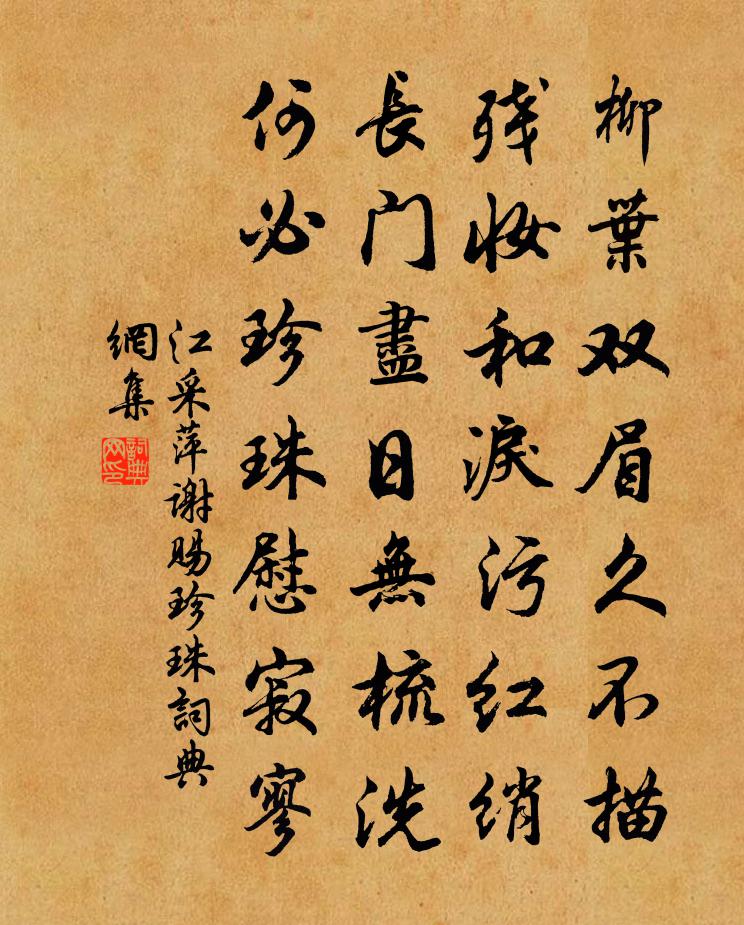 柳葉双眉久不描
残妆和淚污红绡
長门盡日無梳洗
何必珍珠慰寂寥
江采萍谢赐珍珠詞典
網集
詞典
网印